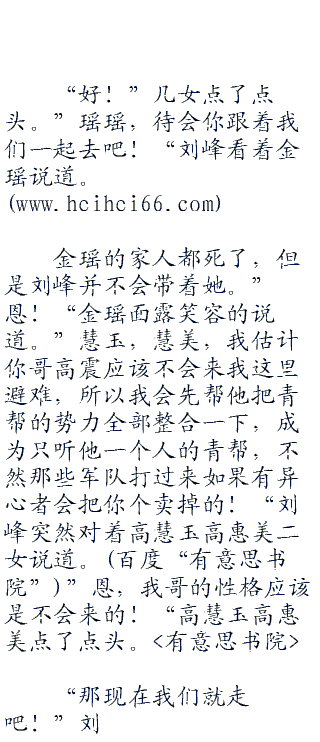 “好！”几女点了点
头。”瑶瑶，待会你跟着我
们一起去吧！“刘峰看着金
瑶说道。
(www.hcihci66.com)
金瑶的家人都死了，但
是刘峰并不会带着她。”
恩！“金瑶面露笑容的说
道。”慧玉，慧美，我估计
你哥高震应该不会来我这里
避难，所以我会先帮他把青
帮的势力全部整合一下，成
为只听他一个人的青帮，不
然那些军队打过来如果有异
心者会把你个卖掉的！“刘
峰突然对着高慧玉高惠美二
女说道。(百度“有意思书
院”)”恩，我哥的性格应该
是不会来的！“高慧玉高惠
美点了点头。<有意思书院>
“那现在我们就走
吧！”刘